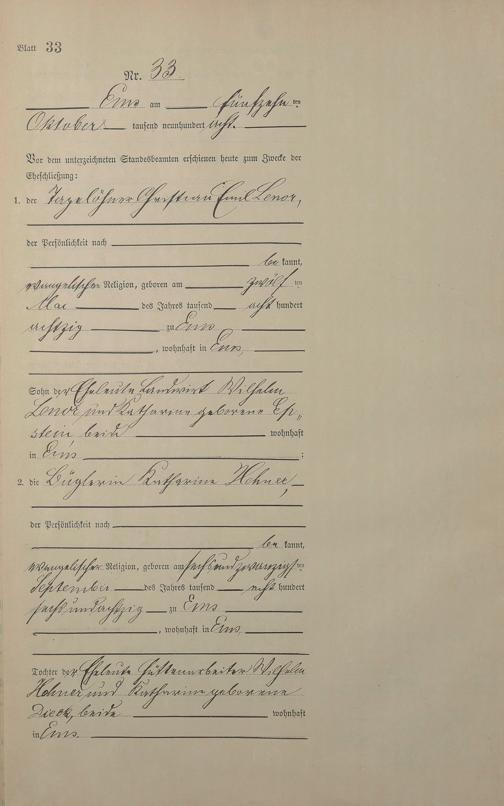 Blatt 33
Nr. 33
Ems am fünfzehnten
Oktober tausend neunhundert acht.
Vor dem unterzeichneten Standesbeamten erschienen heute zum Zwecke der
Eheschließung:
1. der Tagelöhner Christian Emil Lenor,
der Persönlichkeit nach
be kannt,
evangelischer Religion, geboren am zwölf ten
Mai des Jahres tausend acht hundert
achtzig zu Ems
, wohnhaft in Ems,
Sohn der Eheleute Landwirt Wilhelm
Lenor und Katharine geborene Ep-
stein beide wohnhaft
in Ems ;
2. die Büglerin Katharine Hohner,
der Persönlichkeit nach
be kannt,
evangelischer Religion, geboren am sechsundzwanzigsten
September des Jahres tausend acht hundert
sechsundachtzig zu Ems
, wohnhaft in Ems
Tochter der Eheleute Hüttenarbeiter Wilhelm
Hohner und Katharine geborene
beide wohnhaft
in Ems.